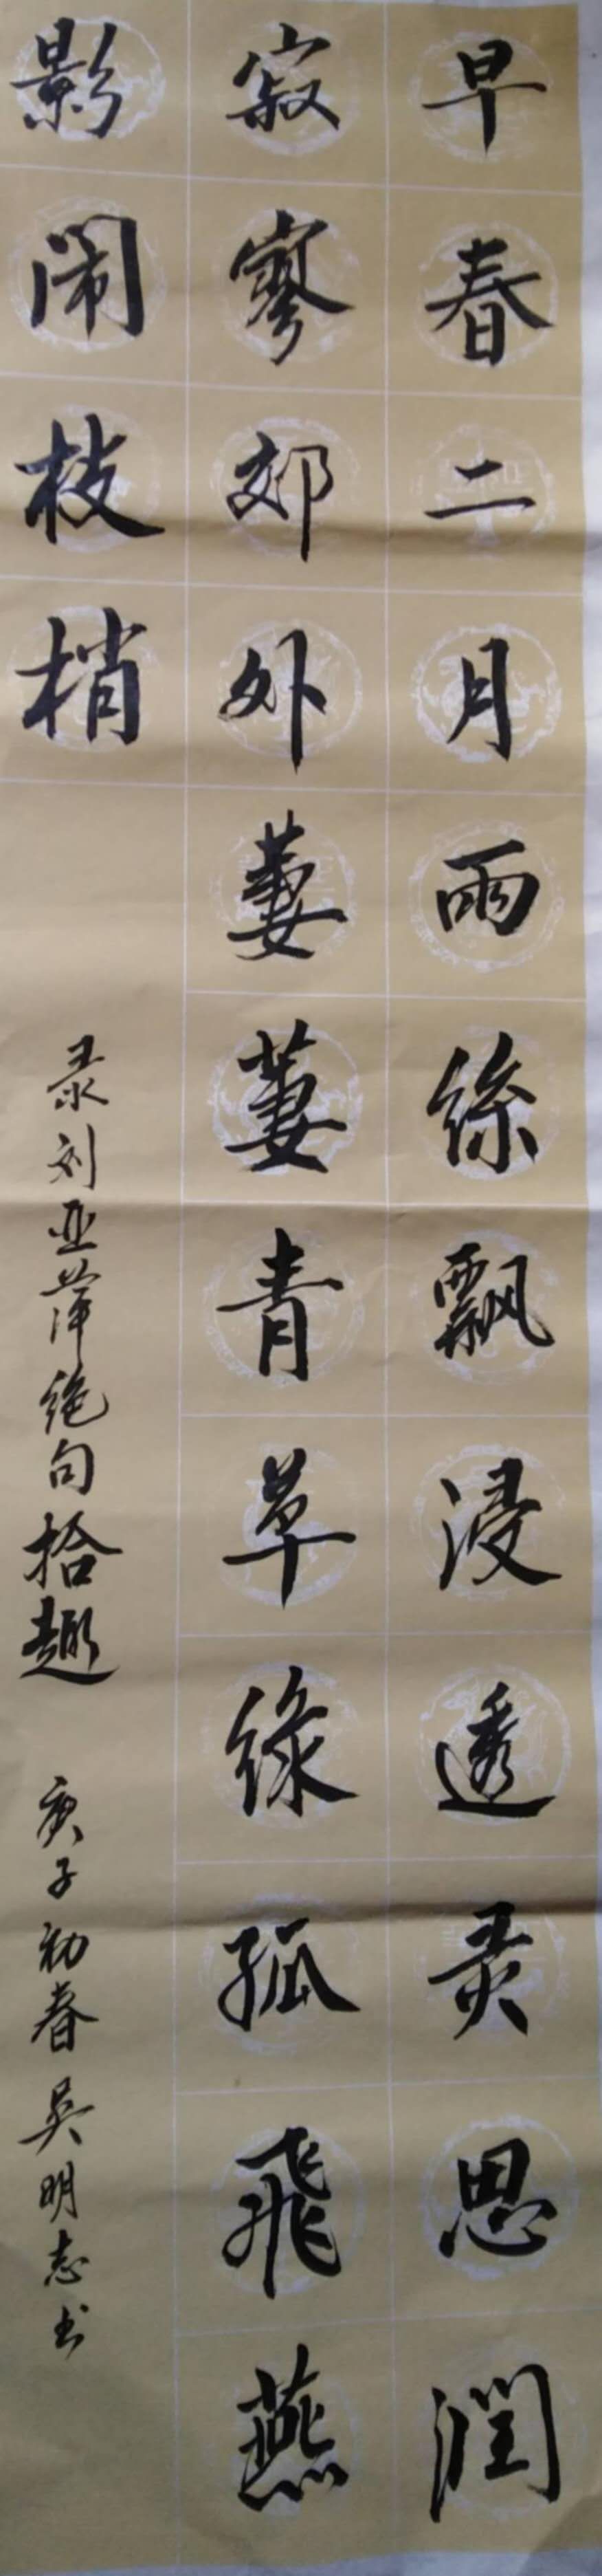 早春二月雨絲飄浸透灵思潤
寂寥郊外萋萋青草綠孤飛燕
影闹枝梢
录刘亚萍绝句拾趣 庚子初春 吴明志书